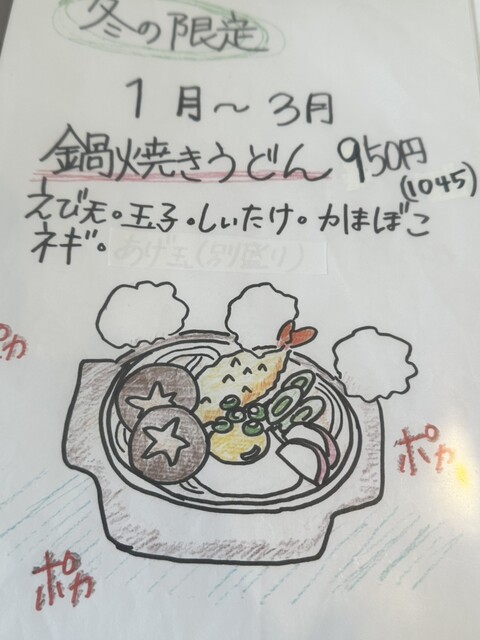 冬の限定
1月～3月
鍋焼きうどん 950円
(1045)
えび天。玉子。しいたけ。かまぼこ
ネギ。あげ玉(別盛り)
ポカ
ポカ
ポカ